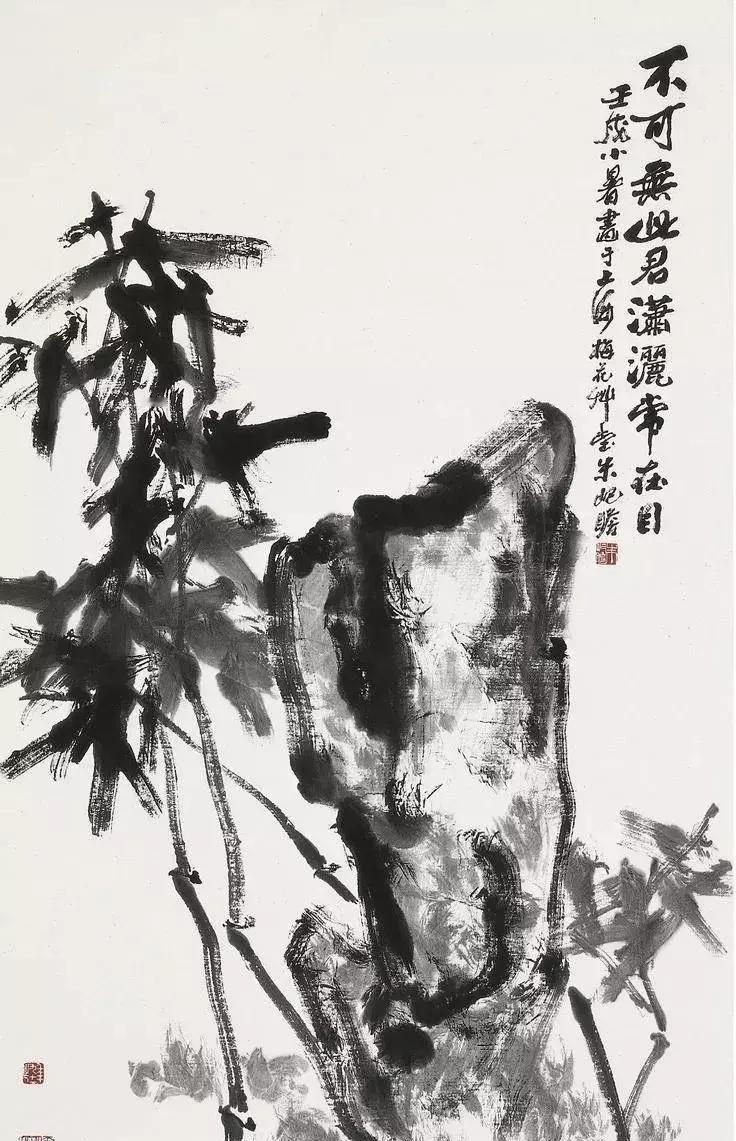 不可無此君瀟灑常在目
壬戌小暑畫于上海梅花草堂朱屺瞻